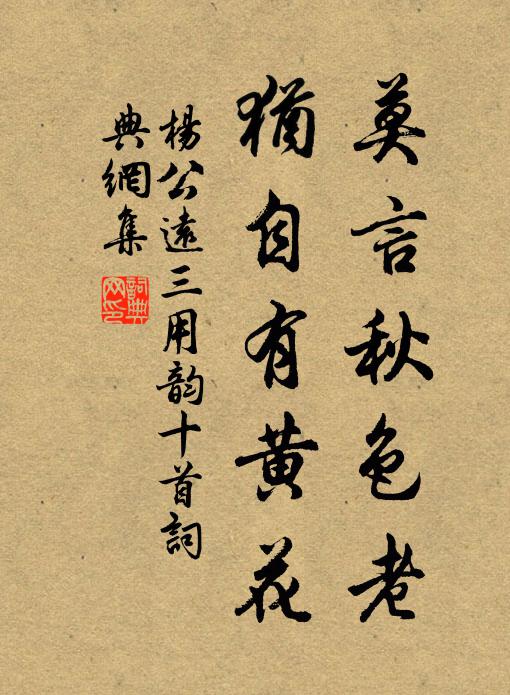 莫言秋色老
猶自有黃花
楊公遠三用韵十首詞
典網集
詞典
网印